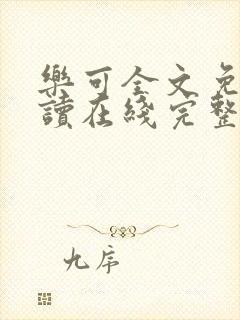 樂可全文免
讀在綫完整
九序